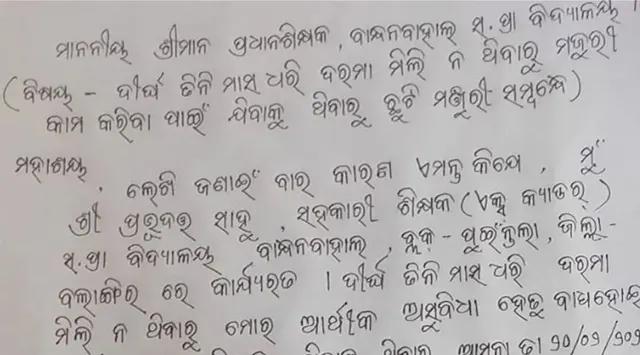 ମାନନୀୟ ଶ୍ରୀମାନ ପ୍ରଧାନଶିକ୍ଷକ, ବାନ୍ଧନବାହାଲ ସ.ପ୍ରା ବିଦ୍ୟାଳୟ
(ବିଷୟ - ଦୀର୍ଘ ତିନି ମାସ ଧରି ଦରମା ମିଲି ନ ଥିବାରୁ ମଜୁରୀ
କାମ କରିବା ପାଇଁ ଯିବାକୁ ଥିବାରୁ ଛୁଟି ମଞ୍ଜୁରୀ ସମ୍ବନ୍ଧେ)
ମହାଶୟ,
ଲେଖି ଜଣାଇଁ ବାର କାରଣ ଏମନ୍ତ କିଯେ, ମୁଁ
ଶ୍ରୀ ସାହୁ, ସହକାରୀ ଶିକ୍ଷକ (ଏକ୍ସ କ୍ୟାଡର୍)
ସ.ପ୍ରା ବିଦ୍ୟାଳୟ ବାନ୍ଧନବାହାଲ, ବ୍ଲକ - ପୁଇଁତଲା, ଜିଲ୍ଲା -
ବଲାଙ୍ଗିର ରେ କାର୍ଯ୍ୟରତ । ଦୀର୍ଘ ତିନି ମାସ ଧରି ଦରମା
ମିଲି ନ ଥିବାରୁ ମୋର ଆର୍ଥିକ ଅସୁବିଧା ହେତୁ ବାଧହୋଇ